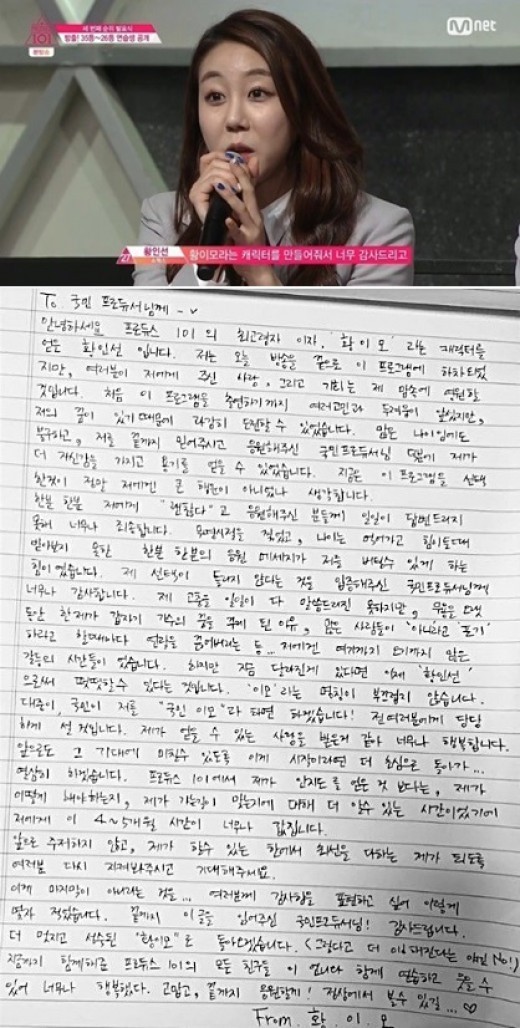 세 번째 순위 발표식
방출! 35등~26등 연습생 공개
Mnet
27
황인선
황이모라는 캐릭터를 만들어줘서 너무 감사드리고
To. 국민 프로듀서님께 -
안녕하세요 프로듀스 101의 최고령자 이자, '황이모' 라는 캐릭터를
얻은 황인선 입니다. 저는 오늘 방송을 끝으로 이 프로그램에 하차하였
지만, 여러분이 저에게 주신 사랑, 그리고 기회는 제 맘속에 영원할
것입니다. 처음 이 프로그램을 출연하기까지 여러고민과 두려움이 있었지만,
저의 꿈이 있기 때문에 과감히 도전할 수 있었습니다. 많은 나이임에도
불구하고, 저를 끝까지 믿어주시고 응원해주신 국민프로듀서님 덕분에 제가
더 자신감을 가지고 용기를 얻을 수 있었습니다. 지금은 이 프로그램을 선택
한것이 정말 저에겐 큰 행운이 아니었나 생각합니다.
한분 한분 저에게 "팬입니다" 고 응원해주신 분들께 일일이 답변드리지
못해 너무나 죄송합니다. 무명시절을 겪었고, 나이는 먹어가고 힘이들때
믿어보지 못한 한분 한분의 응원 메세지가 저를 버틸수 있게 하는
힘이였습니다. 제 선택이 틀리지 않다는 것을 입증해주신 국민프로듀서님께
너무나 감사합니다. 제 고충을 일일이 다 말씀드리진 못하지만, 무용을
동안 한 제가 갑자기 가수의 꿈을 꾸게 된 이유, 많은 사람들이 "아니라고" "포기"
하라고 할때마다 연락을 끊어버리는 등... 저에겐 여기까지 오기까지 많은
갈등의 시간들이 있습니다. 하지만 지금 달라진게 있다면 이제 '황인선'
으로써 떳떳할 수 있다는 것입니다. '이모' 라는 명칭이 부끄럽지 않습니다.
대중이, 국민이 저를 "국민 이모" 라 하면 하겠습니다! 전 여러분에게 당당
하게 설 것입니다. 제가 얻을 수 있는 사랑을 받은거 같아 너무나 행복합니다.
앞으로도 그 기대에 미칠수 있도록 이게 시작이라면 더 초심으로 돌아가...
열심히 하겠습니다. 프로듀스 101에서 제가 인지도를 얻은 것 보다는, 제가
어떻게 해야하는지, 제가 가는길이 맞는지에 대해 더 알수 있는 시간이었기에
저에게 이 4~5개월 시간이 너무나 값집니다.
앞으로 주저하지 않고, 제가 할수 있는 한에서 최선을 다하는 제가 되도록
여러분 다시 지켜봐주시고 기대해주세요.
이게 마지막이 아니라는 것을... 여러분께 감사함을 표현하고 싶어 이렇게
몇자 적었습니다. 끝까지 이글을 읽어주신 국민프로듀서님! 감사드립니다.
더 멋지고 성숙된 "황이모"로 돌아오겠습니다. (그렇다고 더 이모해진다는 얘긴 No!)
지금까지 함께해준 프로듀스 101의 모든 친구들 이 언니랑 함께 연습하고 웃을수
있어 너무나 행복했다. 고맙고, 끝까지 응원할게! 정상에서 볼수 있길...♡
From. 황 이 모